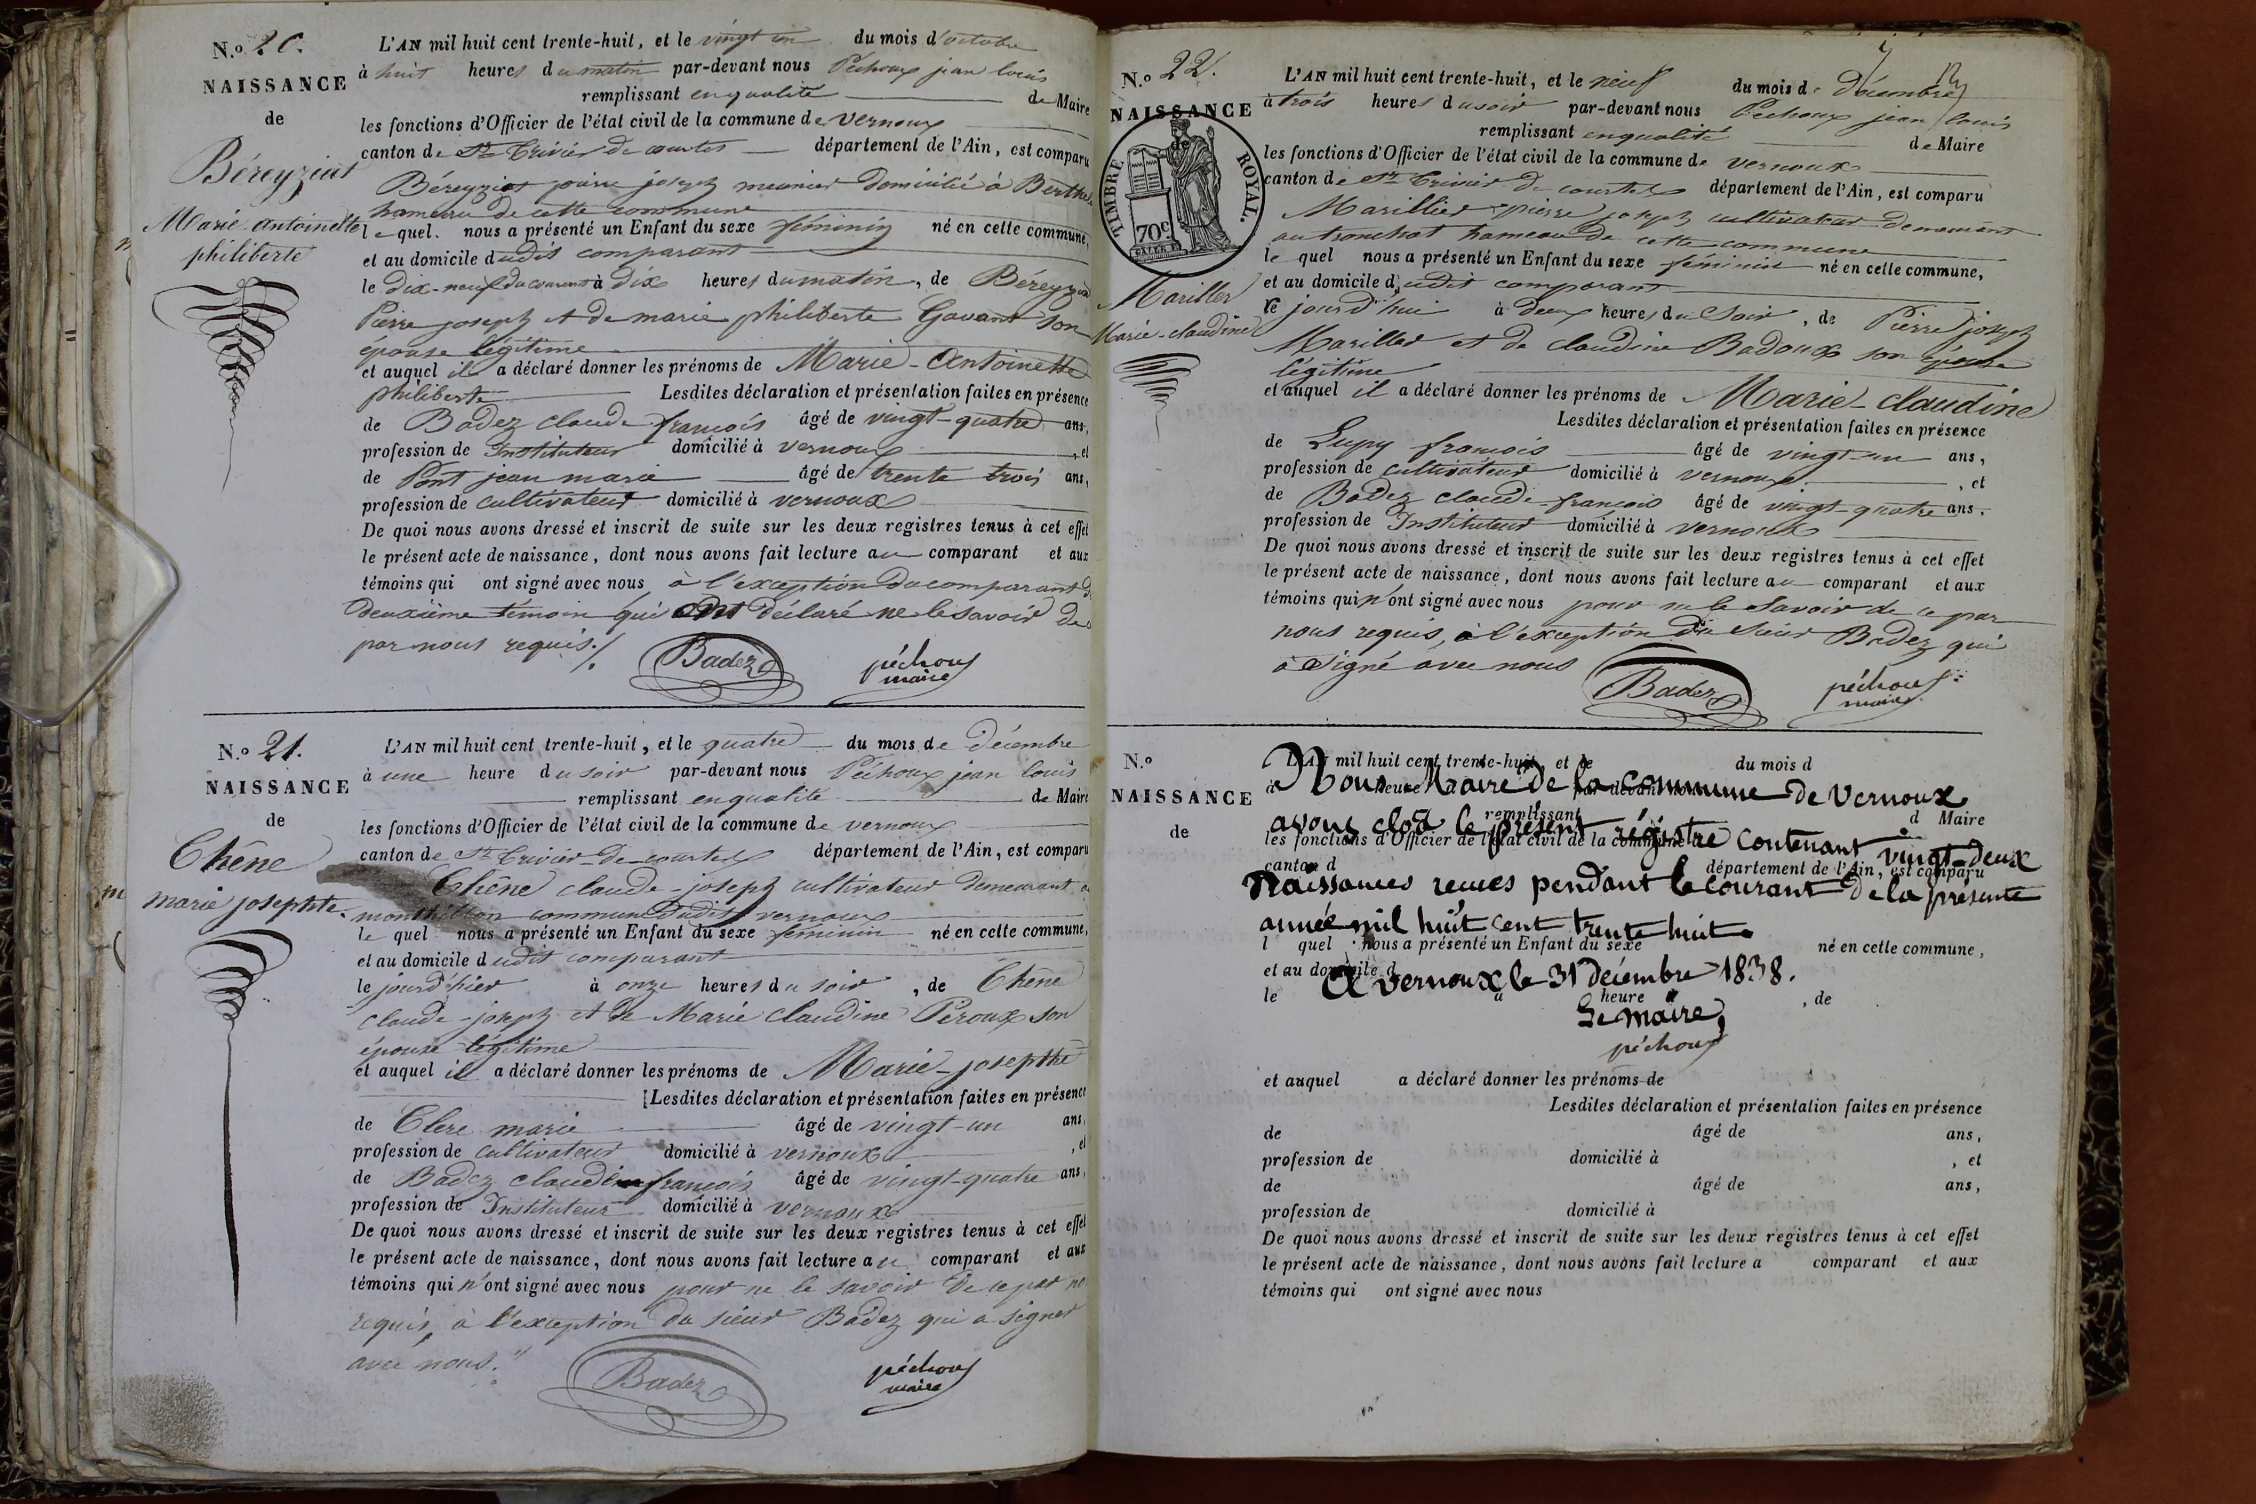 N.º 20.
NAISSANCE
de
Béreyziat
Marie antoinette
philiberte
L'AN mil huit cent trente-huit, et le vingt un du mois d'octobre
à huit heures du matin par-devant nous Péchoux jean louis
remplissant en qualité de Maire
les fonctions d'Officier de l'état civil de la commune de vernoux
canton de St Trivier de courtes département de l'Ain, est comparu
Béreyziat pierre joseph meunier domicilié à
hameau de cette commune
lequel nous a présenté un Enfant du sexe féminin né en cette commune,
et au domicile dudit comparant
le dix-neuf du courant à dix heures du matin, de Béreyziat
Pierre joseph et de marie philiberte Gavand son
épouse légitime
et auquel il a déclaré donner les prénoms de Marie-Antoinette
philiberte Lesdites déclaration et présentation faites en présence
de Badez claude françois âgé de vingt-quatre ans,
profession de Instituteur domicilié à vernoux, et
de Pont jean marie âgé de trente trois ans,
profession de cultivateur domicilié à vernoux
De quoi nous avons dressé et inscrit de suite sur les deux registres tenus à cet effet
le présent acte de naissance, dont nous avons fait lecture au comparant et aux
témoins qui ont signé avec nous à l'exception du comparant
deuxième témoin qui ont déclaré ne le savoir de
par nous requis./.
Badez
péchoux
maire
N.º 21.
NAISSANCE
de
Chêne
marie josephte.
L'AN mil huit cent trente-huit, et le quatre du mois de décembre
à une heure du soir par-devant nous Péchoux jean louis
remplissant en qualité de Maire
les fonctions d'Officier de l'état civil de la commune de vernoux
canton de St Trivier-de-courtes département de l'Ain, est comparu
Chêne claude-joseph cultivateur demeurant
commune dudit vernoux
le quel nous a présenté un Enfant du sexe féminin né en cette commune,
et au domicile dudit comparant
le jourd'hier à onze heures du soir, de Chêne
claude-joseph et de Marie claudine Péroux son
épouse légitime
et auquel il a déclaré donner les prénoms de Marie-josepthe
Lesdites déclaration et présentation faites en présence
de Clere marie âgé de vingt-un ans,
profession de cultivateur domicilié à vernoux, et
de Badez claude françois âgé de vingt-quatre ans,
profession de Instituteur domicilié à vernoux
De quoi nous avons dressé et inscrit de suite sur les deux registres tenus à cet effet
le présent acte de naissance, dont nous avons fait lecture au comparant et aux
témoins qui n'ont signé avec nous pour ne le savoir de ce par
requis, à l'exception du sieur Badez qui a signer
avec nous.
Badez
péchoux
maire
N.º 22.
NAISSANCE
de
TIMBRE ROYAL.
70c.
Mariller
Marie-claudine
L'AN mil huit cent trente-huit, et le neuf du mois de décembre
à trois heures du soir par-devant nous Péchoux jean louis
remplissant en qualité de Maire
les fonctions d'Officier de l'état civil de la commune de vernoux
canton de St Trivier de courtes département de l'Ain, est comparu
Marillier pierre joseph cultivateur demeurant
au tronchat hameau de cette commune
le quel nous a présenté un Enfant du sexe féminin né en cette commune,
et au domicile dudit comparant
ce jourd'hui à deux heures du soir, de Pierre joseph
Mariller et de claudine Badoux son épouse
légitime
et auquel il a déclaré donner les prénoms de Marie-claudine
Lesdites déclaration et présentation faites en présence
de Lupy françois âgé de vingt-un ans,
profession de cultivateur domicilié à vernoux, et
de Badez claude-françois âgé de vingt-quatre ans,
profession de Instituteur domicilié à vernoux
De quoi nous avons dressé et inscrit de suite sur les deux registres tenus à cet effet
le présent acte de naissance, dont nous avons fait lecture au comparant et aux
témoins qui n'ont signé avec nous pour ne le savoir de ce par
nous requis, à l'exception du sieur Badez qui
a signé avec nous
Badez
péchoux
maire
N.º
NAISSANCE
de
L'AN mil huit cent trente-huit, et le du mois d
Nous Maire de la commune de vernoux
remplissant d Maire
avons clos le présent régistre contenant vingt-deux
les fonctions d'Officier de l'état civil de la commune
canton d département de l'Ain, est comparu
Naissances recues pendant le courant de la présente
année mil huit cent trente huit.
l quel nous a présenté un Enfant du sexe né en cette commune,
et au domicile d
A vernoux le 31 décembre 1838.
le à heure d , de
Le maire,
péchoux
et auquel a déclaré donner les prénoms de
Lesdites déclaration et présentation faites en présence
de âgé de ans,
profession de domicilié à , et
de âgé de ans,
profession de domicilié à
De quoi nous avons dressé et inscrit de suite sur les deux registres tenus à cet effet
le présent acte de naissance, dont nous avons fait lecture a comparant et aux
témoins qui ont signé avec nous